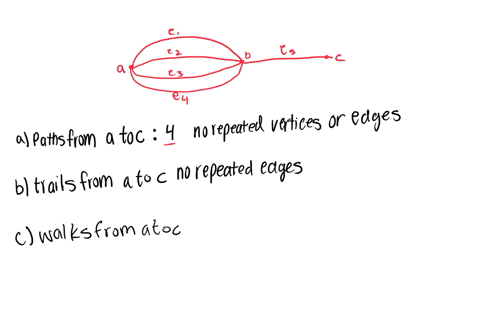 e1
e2
a b e5 c
e3
e4
a) Paths from a to c : 4 no repeated vertices or edges
b) trails from a to c no repeated edges
c) walks from a to c